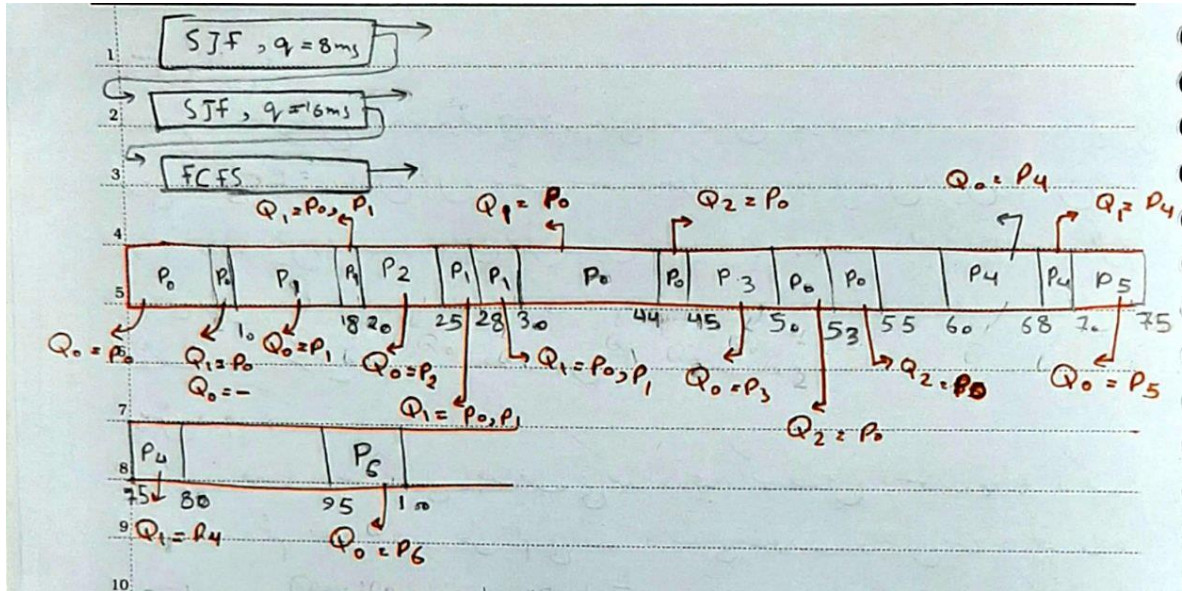 1 SJF, q = 8ms
2 SJF, q = 16ms
3 FCFS
Q₀ = P₄
Q₁ = P₀, P₁ Q₁ = P₀ Q₂ = P₀ Q₁ = P₄
4
P₀ P₀ P₁ P₁ P₂ P₁ P₁ P₀ P₀ P₃ P₀ P₀ P₄ P₄ P₅
5
10 18 20 25 28 30 44 45 50 53 55 60 68 70 75
Q₀ = P₀ Q₁ = P₀ Q₀ = P₁ Q₀ = P₂ Q₁ = P₀, P₁ Q₀ = P₃ Q₂ = P₀ Q₀ = P₅
6
Q₀ = –
Q₁ = P₀, P₁ Q₂ = P₀
7
P₄ P₆
8
75 80 95 100
9 Q₁ = P₄ Q₀ = P₆
10